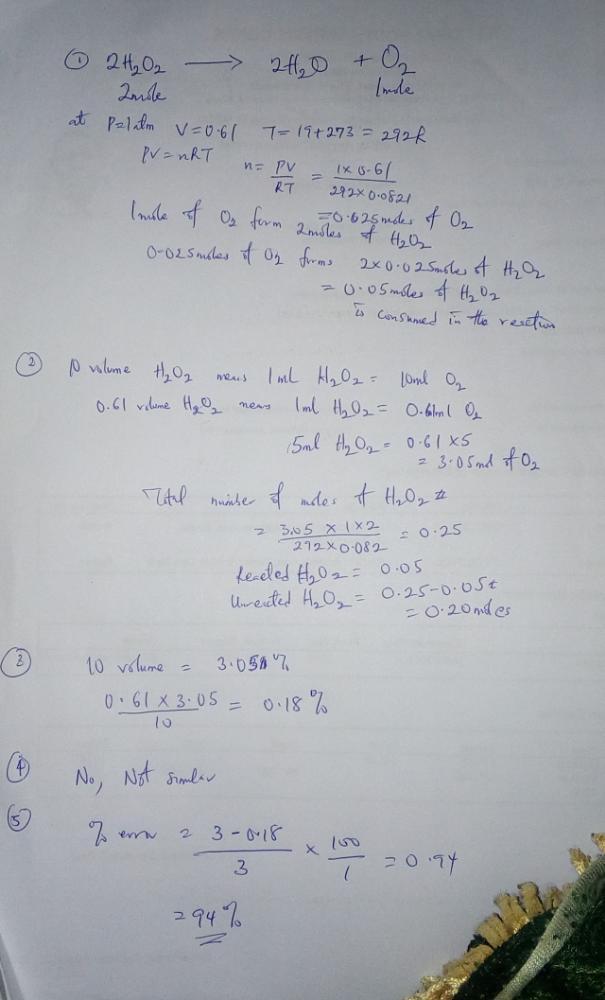 ① 2H₂O₂ → 2H₂O + O₂
2mole 1mole
at P=1atm V=0.61 T= 19+273 = 292k
PV=nRT n= PV/RT = 1×0.61/292×0.0821
=0.025moles of O₂
1mole of O₂ form 2moles of H₂O₂
0.025moles of O₂ forms 2×0.025moles of H₂O₂
= 0.05moles of H₂O₂
is consumed in the reaction
② 10 volume H₂O₂ means 1mL H₂O₂ = 10ml O₂
0.61 volume H₂O₂ means 1ml H₂O₂ = 0.61ml O₂
5ml H₂O₂ = 0.61×5
= 3.05ml of O₂
Total number of moles of H₂O₂
= 3.05 × 1×2/292×0.082 = 0.25
Reacted H₂O₂ = 0.05
Unreacted H₂O₂ = 0.25-0.05
= 0.20moles
③ 10 volume = 3.05%
0.61 × 3.05/10 = 0.18%
④ No, Not similar
⑤ % error = 3-0.18/3 × 100/1 = 0.94
= 94%